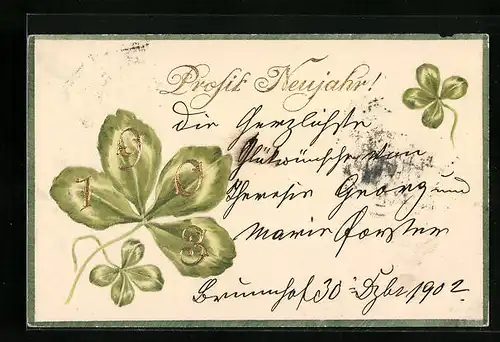 Prosit Neujahr!
1903
Die Herzlichste
Glütwünsche von
Theresie Georg und
Marie Forster
Brunnhof 30 Dzbr 1902